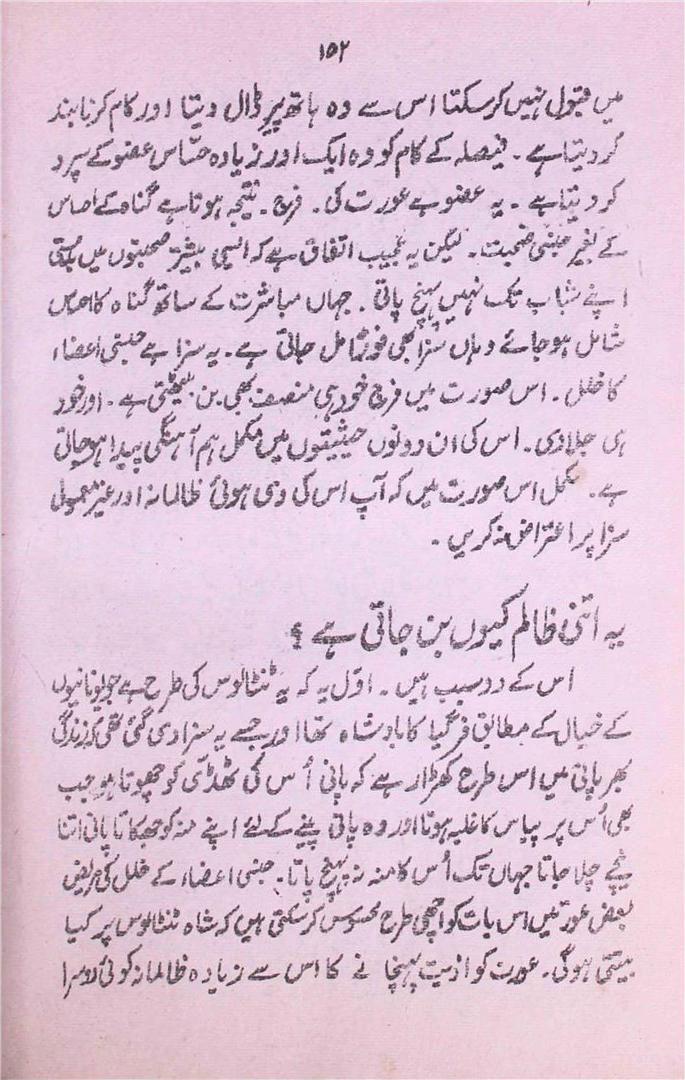 ۱۵۲
میں قبول نہیں کر سکتا اس سے وہ ہاتھ پیر ڈال دیتا اور کام کرنا بند
کر دیتا ہے ۔ فیصلہ کے کام کو وہ ایک اور زیادہ حسّاس عضو کے سپرد
کر دیتا ہے ۔ یہ عضو ہے عورت کی ۔ فرج ۔ نتیجہ ہوتا ہے گناہ کے احساس
کے بغیر جنسی صحبت ۔ لیکن یہ عجیب اتفاق ہے کہ ایسی بیشتر صحبتوں میں
اپنے شباب تک نہیں پہنچ پاتی ۔ جہاں مباشرت کے ساتھ گناہ کا احساس
شامل ہو جائے وہاں سزا بھی فوراً مل جاتی ہے ۔ یہ سزا ہے جنسی اعضاء
کا خلل ۔ اس صورت میں فرج خود ہی منصف بھی بن بیٹھتی ہے ۔ اور خود
ہی جلاد بھی ۔ اس کی ان دونوں حیثیتوں میں مکمل ہم آہنگی پیدا ہو جاتی
ہے ۔ مکمل اس صورت میں کہ آپ اس کی دی ہوئی ظالمانہ اور غیر معمولی
سزا پر اعتراض نہ کریں ۔
یہ اتنی ظالم کیوں بن جاتی ہے ؟
اس کے دو سبب ہیں ۔ اوّل یہ کہ یہ ٹنٹالوس کی طرح ہے جو یونانیوں
کے خیال کے مطابق فرگیا کا بادشاہ تھا اور جسے یہ سزا دی گئی تھی کہ زندگی
بھر پانی میں اس طرح کھڑا رہے کہ پانی اُس کی ٹھڈّی کو چھوتا ہو جب
بھی اُس پر پیاس کا غلبہ ہوتا اور وہ پانی پینے کے لئے اپنے منہ کو جھکاتا پانی اتنا
نیچے چلا جاتا جہاں تک اُس کا منہ نہ پہنچ پاتا ۔ جنسی اعضاء کے خلل کی مریض
بعض عورتیں اس بات کو اچھی طرح محسوس کر سکتی ہیں کہ شاہ ٹنٹالوس پر کیا
بیتتی ہوگی ۔ عورت کو اذیت پہنچانے کا اس سے زیادہ ظالمانہ کوئی دوسرا